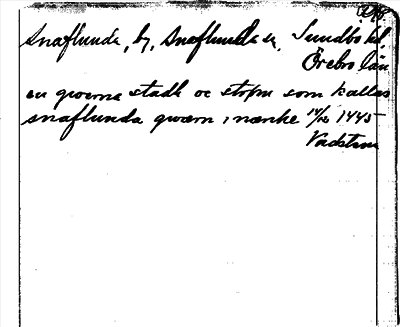 Snaflunda, by, Snaflunda sn, Sundbo hd,
Örebro län
en qwerna stadh oc strøm som kallas
snaflunda qwærn i nærike 14/12 1445
Vadstena